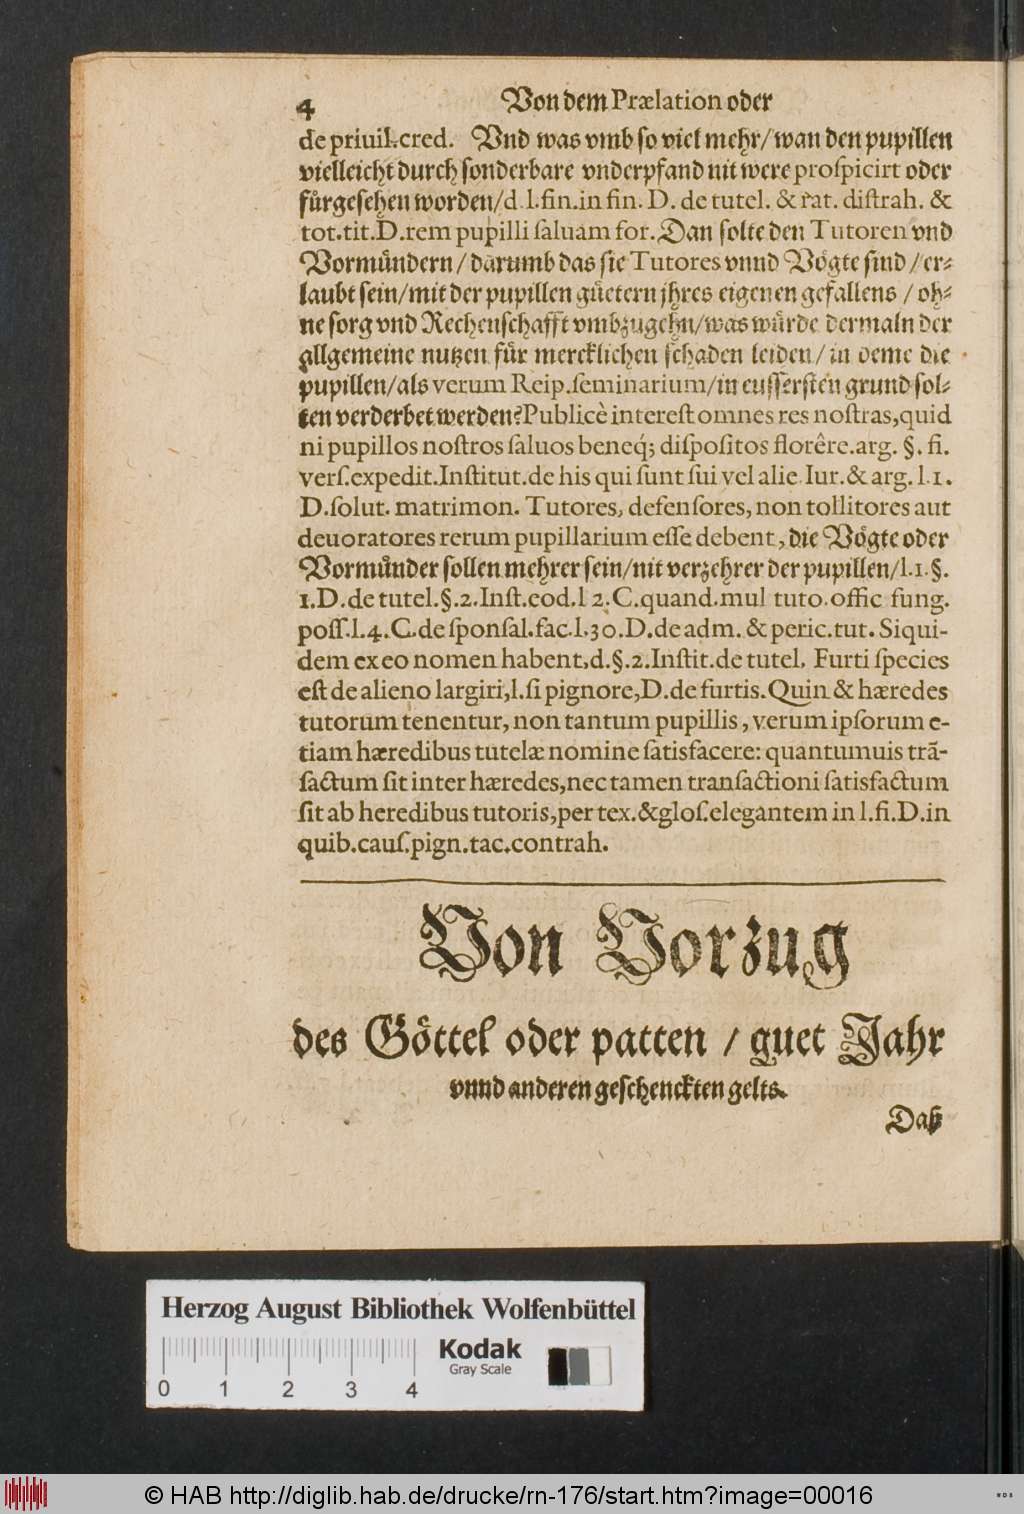 4 Von dem Prælation oder
de priuil. cred. Vnd was vmb so viel mehr/wan den pupillen
vielleicht durch sonderbare vnderpfand nit were proſpicirt oder
fuͤrgesehen worden/d l. fin. in fin. D. de tutel. & rat. diſtrah. &
tot. tit. D. rem pupilli ſaluam for. Dan solte den Tutoren vnd
Vormuͤndern/darumb das sie Tutores vnnd Voͤgte sind/er-
laubt sein/mit der pupillen guͤetern jhres eigenen gefallens/oh-
ne sorg vnd Rechenschafft vmbzugehn/was wuͤrde dermaln der
allgemeine nutzen fuͤr mercklichen schaden leiden/in deme die
pupillen/als verum Reip. ſeminarium/in eussersten grund sol-
ten verderbet werden? Publicè intereſt omnes res noſtras, quid
ni pupillos noſtros ſaluos beneq́; diſpoſitos florêre. arg. §. fi.
verſ. expedit. Inſtitut. de his qui ſunt ſui vel alie. Iur. & arg. l. 1.
D. ſolut. matrimon. Tutores, defenſores, non tollitores aut
deuoratores rerum pupillarium eſſe debent, die Voͤgte oder
Vormuͤnder sollen mehrer sein/nit verzehrer der pupillen/l. 1. §.
1. D. de tutel. §. 2. Inſt. eod. l 2. C. quand. mul tuto. offic fung.
poſſ. l. 4. C. de ſponſal. fac. l. 30. D. de adm. & peric. tut. Siqui-
dem ex eo nomen habent, d. §. 2. Inſtit. de tutel. Furti ſpecies
eſt de alieno largiri, l. ſi pignore, D. de furtis. Quin & hæredes
tutorum tenentur, non tantum pupillis, verum ipſorum e-
tiam hæredibus tutelæ nomine ſatisfacere: quantumuis trã-
ſactum ſit inter hæredes, nec tamen tranſactioni ſatisfactum
ſit ab heredibus tutoris, per tex. & gloſ. elegantem in l. fi. D. in
quib. cauſ. pign. tac. contrah.
Von Vorzug
des Goͤttel oder patten / guet Jahr
vnnd anderen geschenckten gelts.
Daß
Herzog August Bibliothek Wolfenbüttel
Kodak
Gray Scale
0 1 2 3 4
© HAB http://diglib.hab.de/drucke/rn-176/start.htm?image=00016